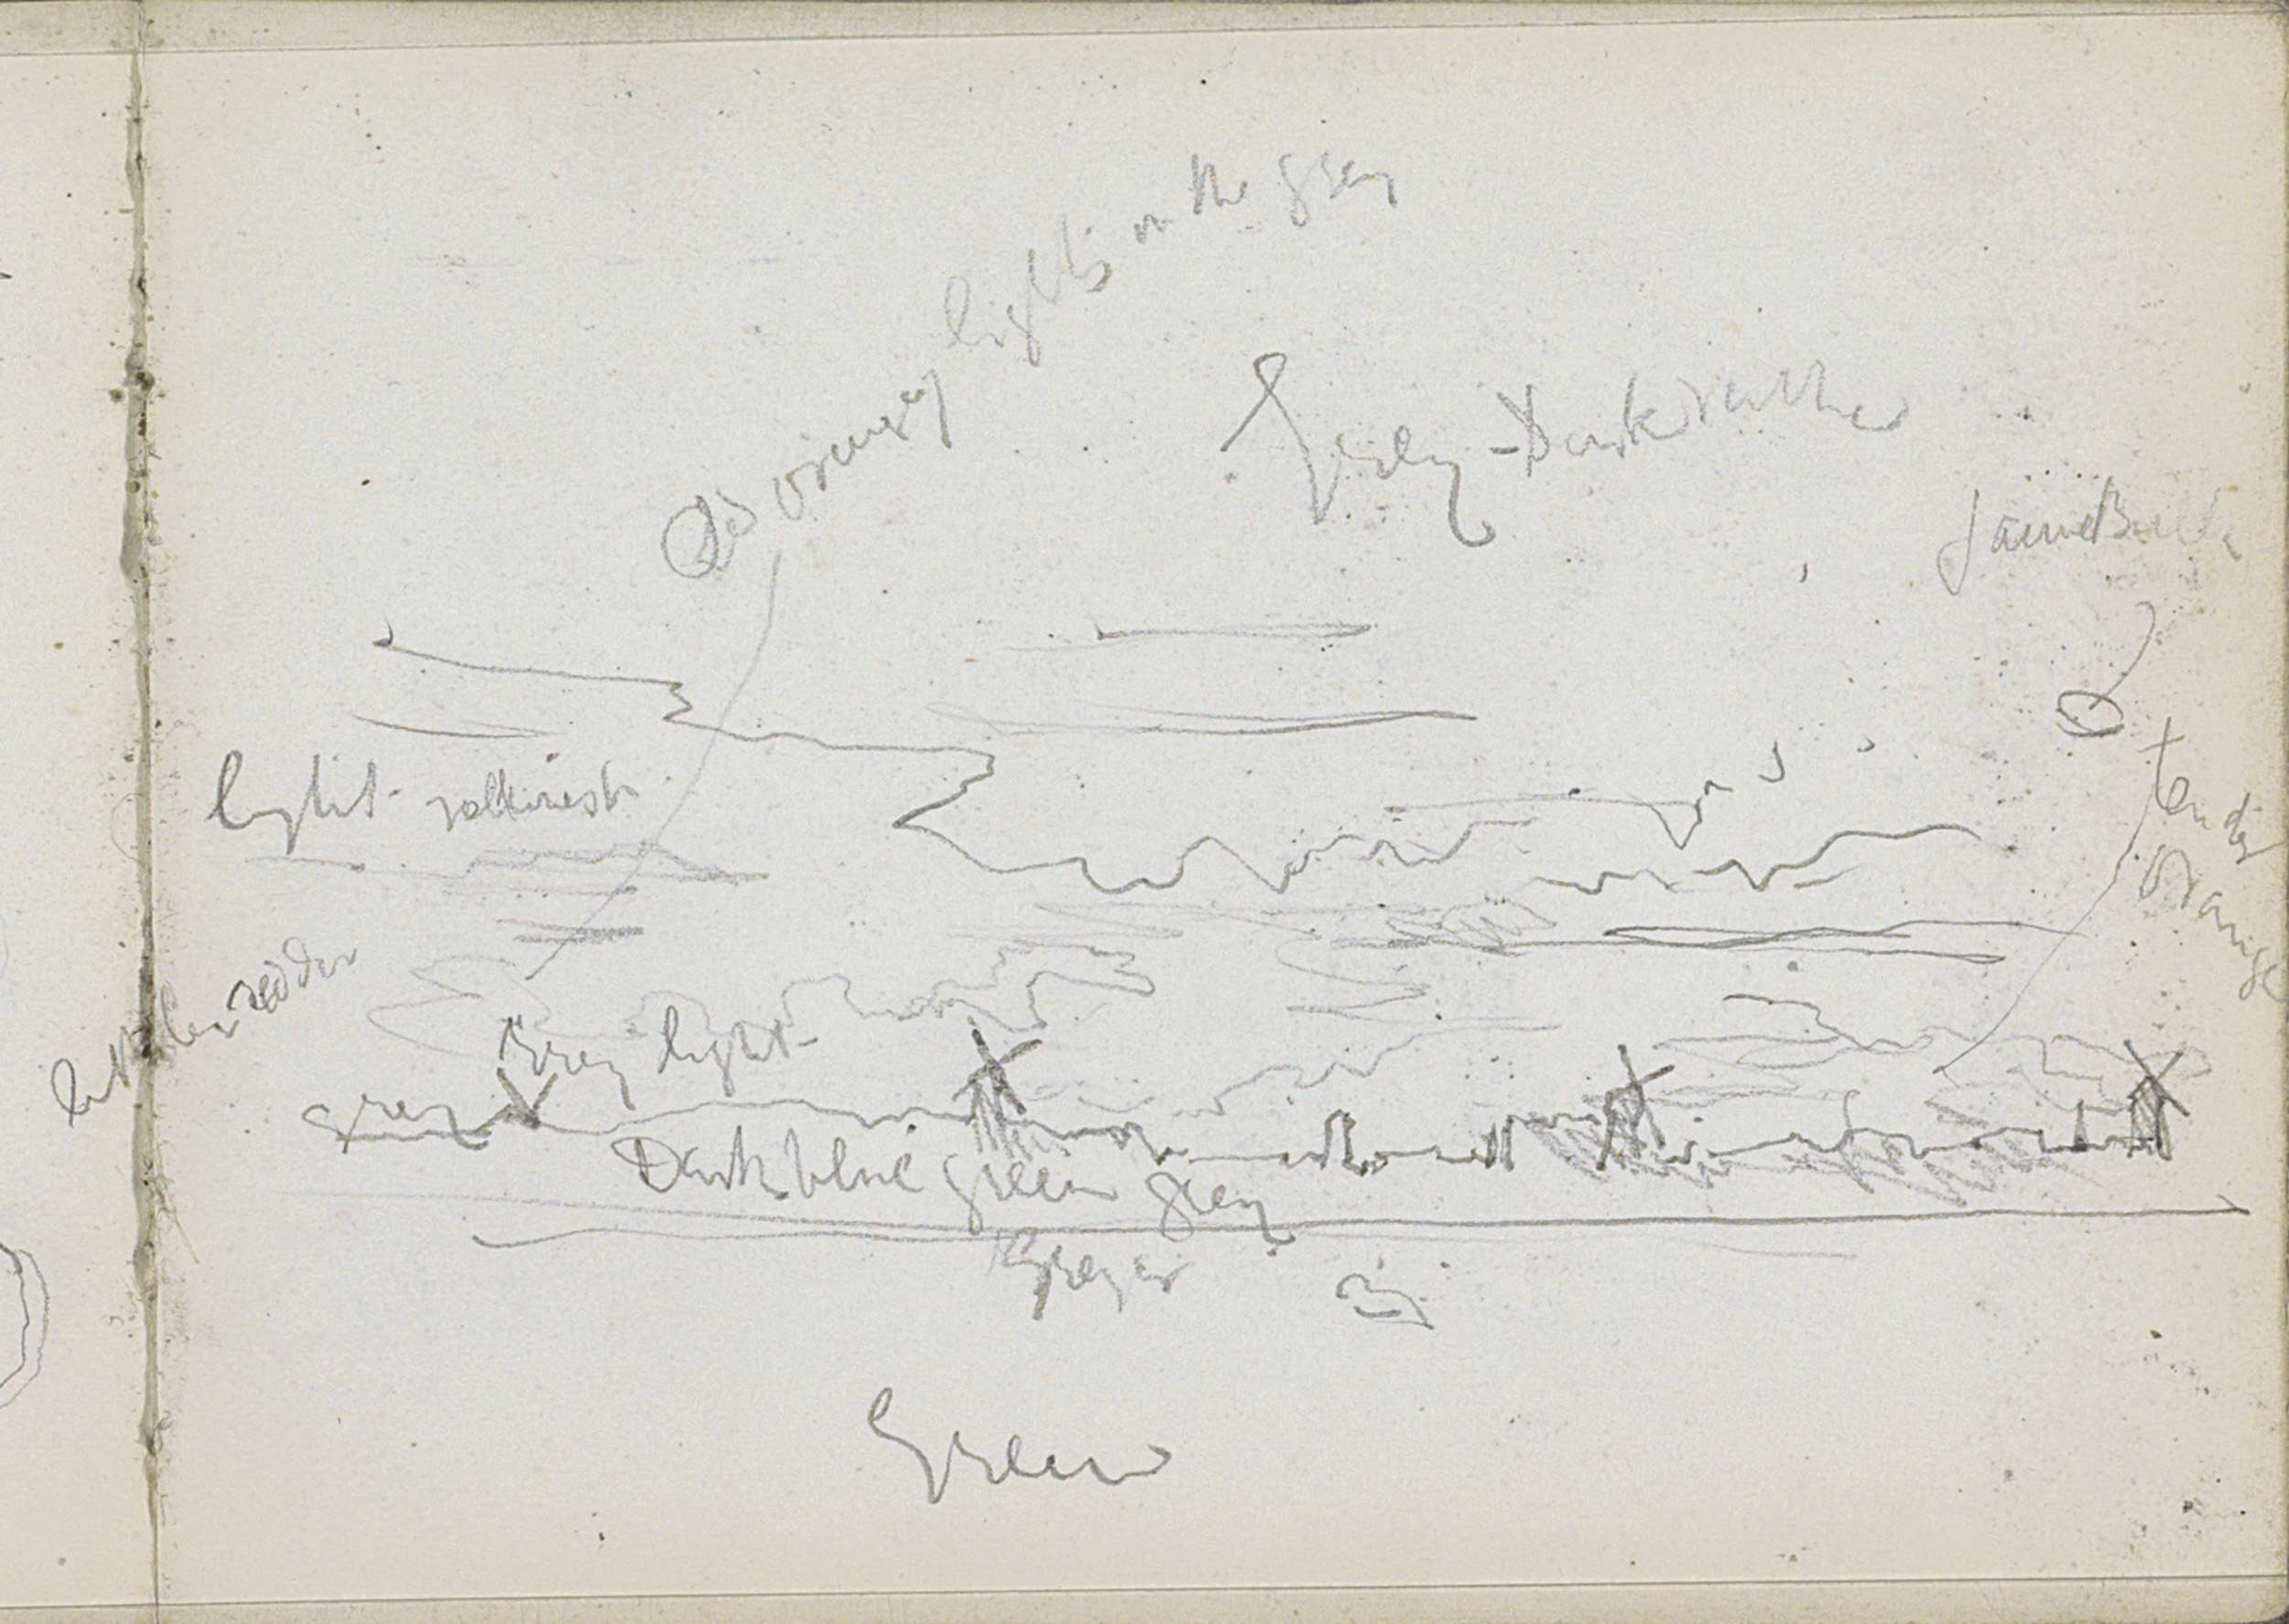 Red orangey lights on the grey
Grey - Dark rather
same
tender
orange
light
redder
Grey light
grey
Dark blue green grey
Greyer
Green